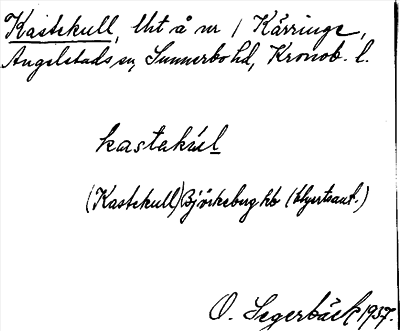 Kastekull, lht å nr 1 Kärringe,
Angelstads sn, Sunnerbo hd, Kronob. l.
kastakúl
(Kastekull) Björkeberg hb
O. Segerbäck 1937.